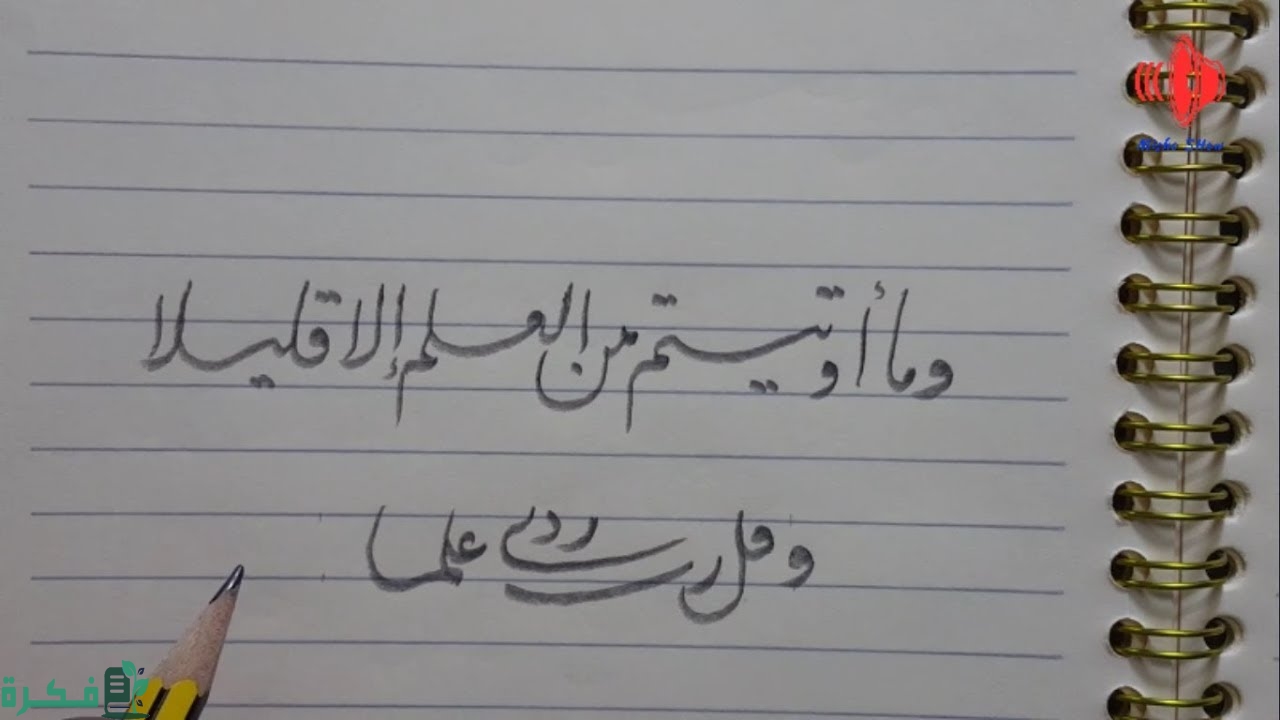 وما أوتيتم من العلم إلا قليلا
وقل رب زدني علما
فكرة